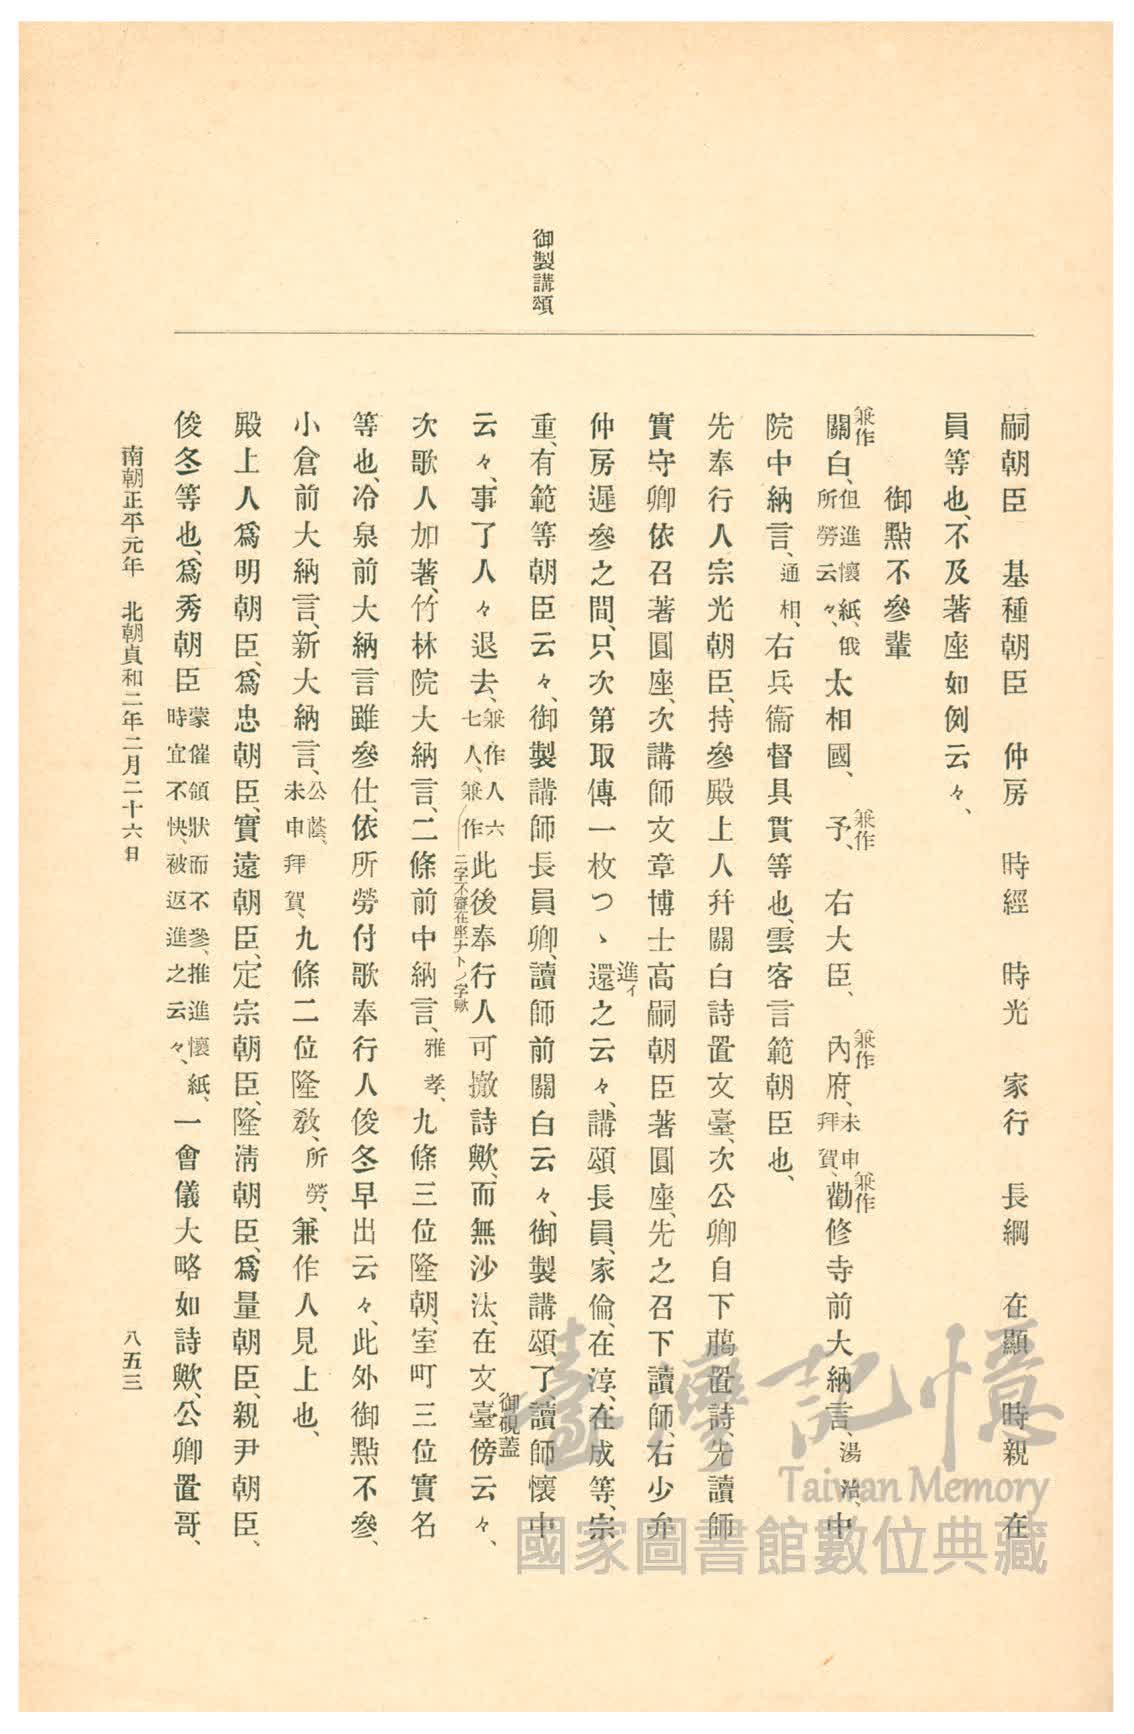 御製講頌
嗣朝臣　基種朝臣　仲房　時經　時光　家行　長綱　在顯　時親　在
員等也、不及著座如例云々、
御點不參輩
兼作
關白、但進懷紙、俄所勞云々、太相國、　予、　右大臣、　內府、未申拜賀、勸修寺前大納言、湯治、中
兼作
兼作
兼作
院中納言、通相、右兵衞督具貫等也、雲客言範朝臣也、
先奉行人宗光朝臣、持參殿上人幷關白詩置文臺、次公卿自下﨟置詩、先讀師
實守卿依召著圓座、次講師文章博士高嗣朝臣著圓座、先之召下讀師、右少弁
仲房遲參之間、只次第取傳一枚つヽ還之云々、講頌長員、家倫、在淳、在成等、宗
進イ
重、有範等朝臣云々、御製講師長員卿、讀師前關白云々、御製講頌了、讀師懷中
云々、事了人々退去、兼作人六七人、兼作此後奉行人可撤詩歟、而無沙汰、在文臺傍云々、
二字不審在座ナトノ字歟
御硯蓋
次歌人加著、竹林院大納言、二條前中納言、雅孝、九條三位隆朝、室町三位實名
等也、冷泉前大納言雖參仕、依所勞付歌奉行人俊冬早出云々、此外御點不參、
小倉前大納言、新大納言、公蔭、未申拜賀、九條二位隆敎、所勞、兼作人見上也、
殿上人爲明朝臣、爲忠朝臣、實遠朝臣、定宗朝臣、隆淸朝臣、爲量朝臣、親尹朝臣、
俊冬等也、爲秀朝臣蒙催領狀而不參、推進懷紙、時宜不快、被返進之云々、一會儀大略如詩歟、公卿置哥、
南朝正平元年　北朝貞和二年二月二十六日
八五三
臺灣記憶
Taiwan Memory
國家圖書館數位典藏